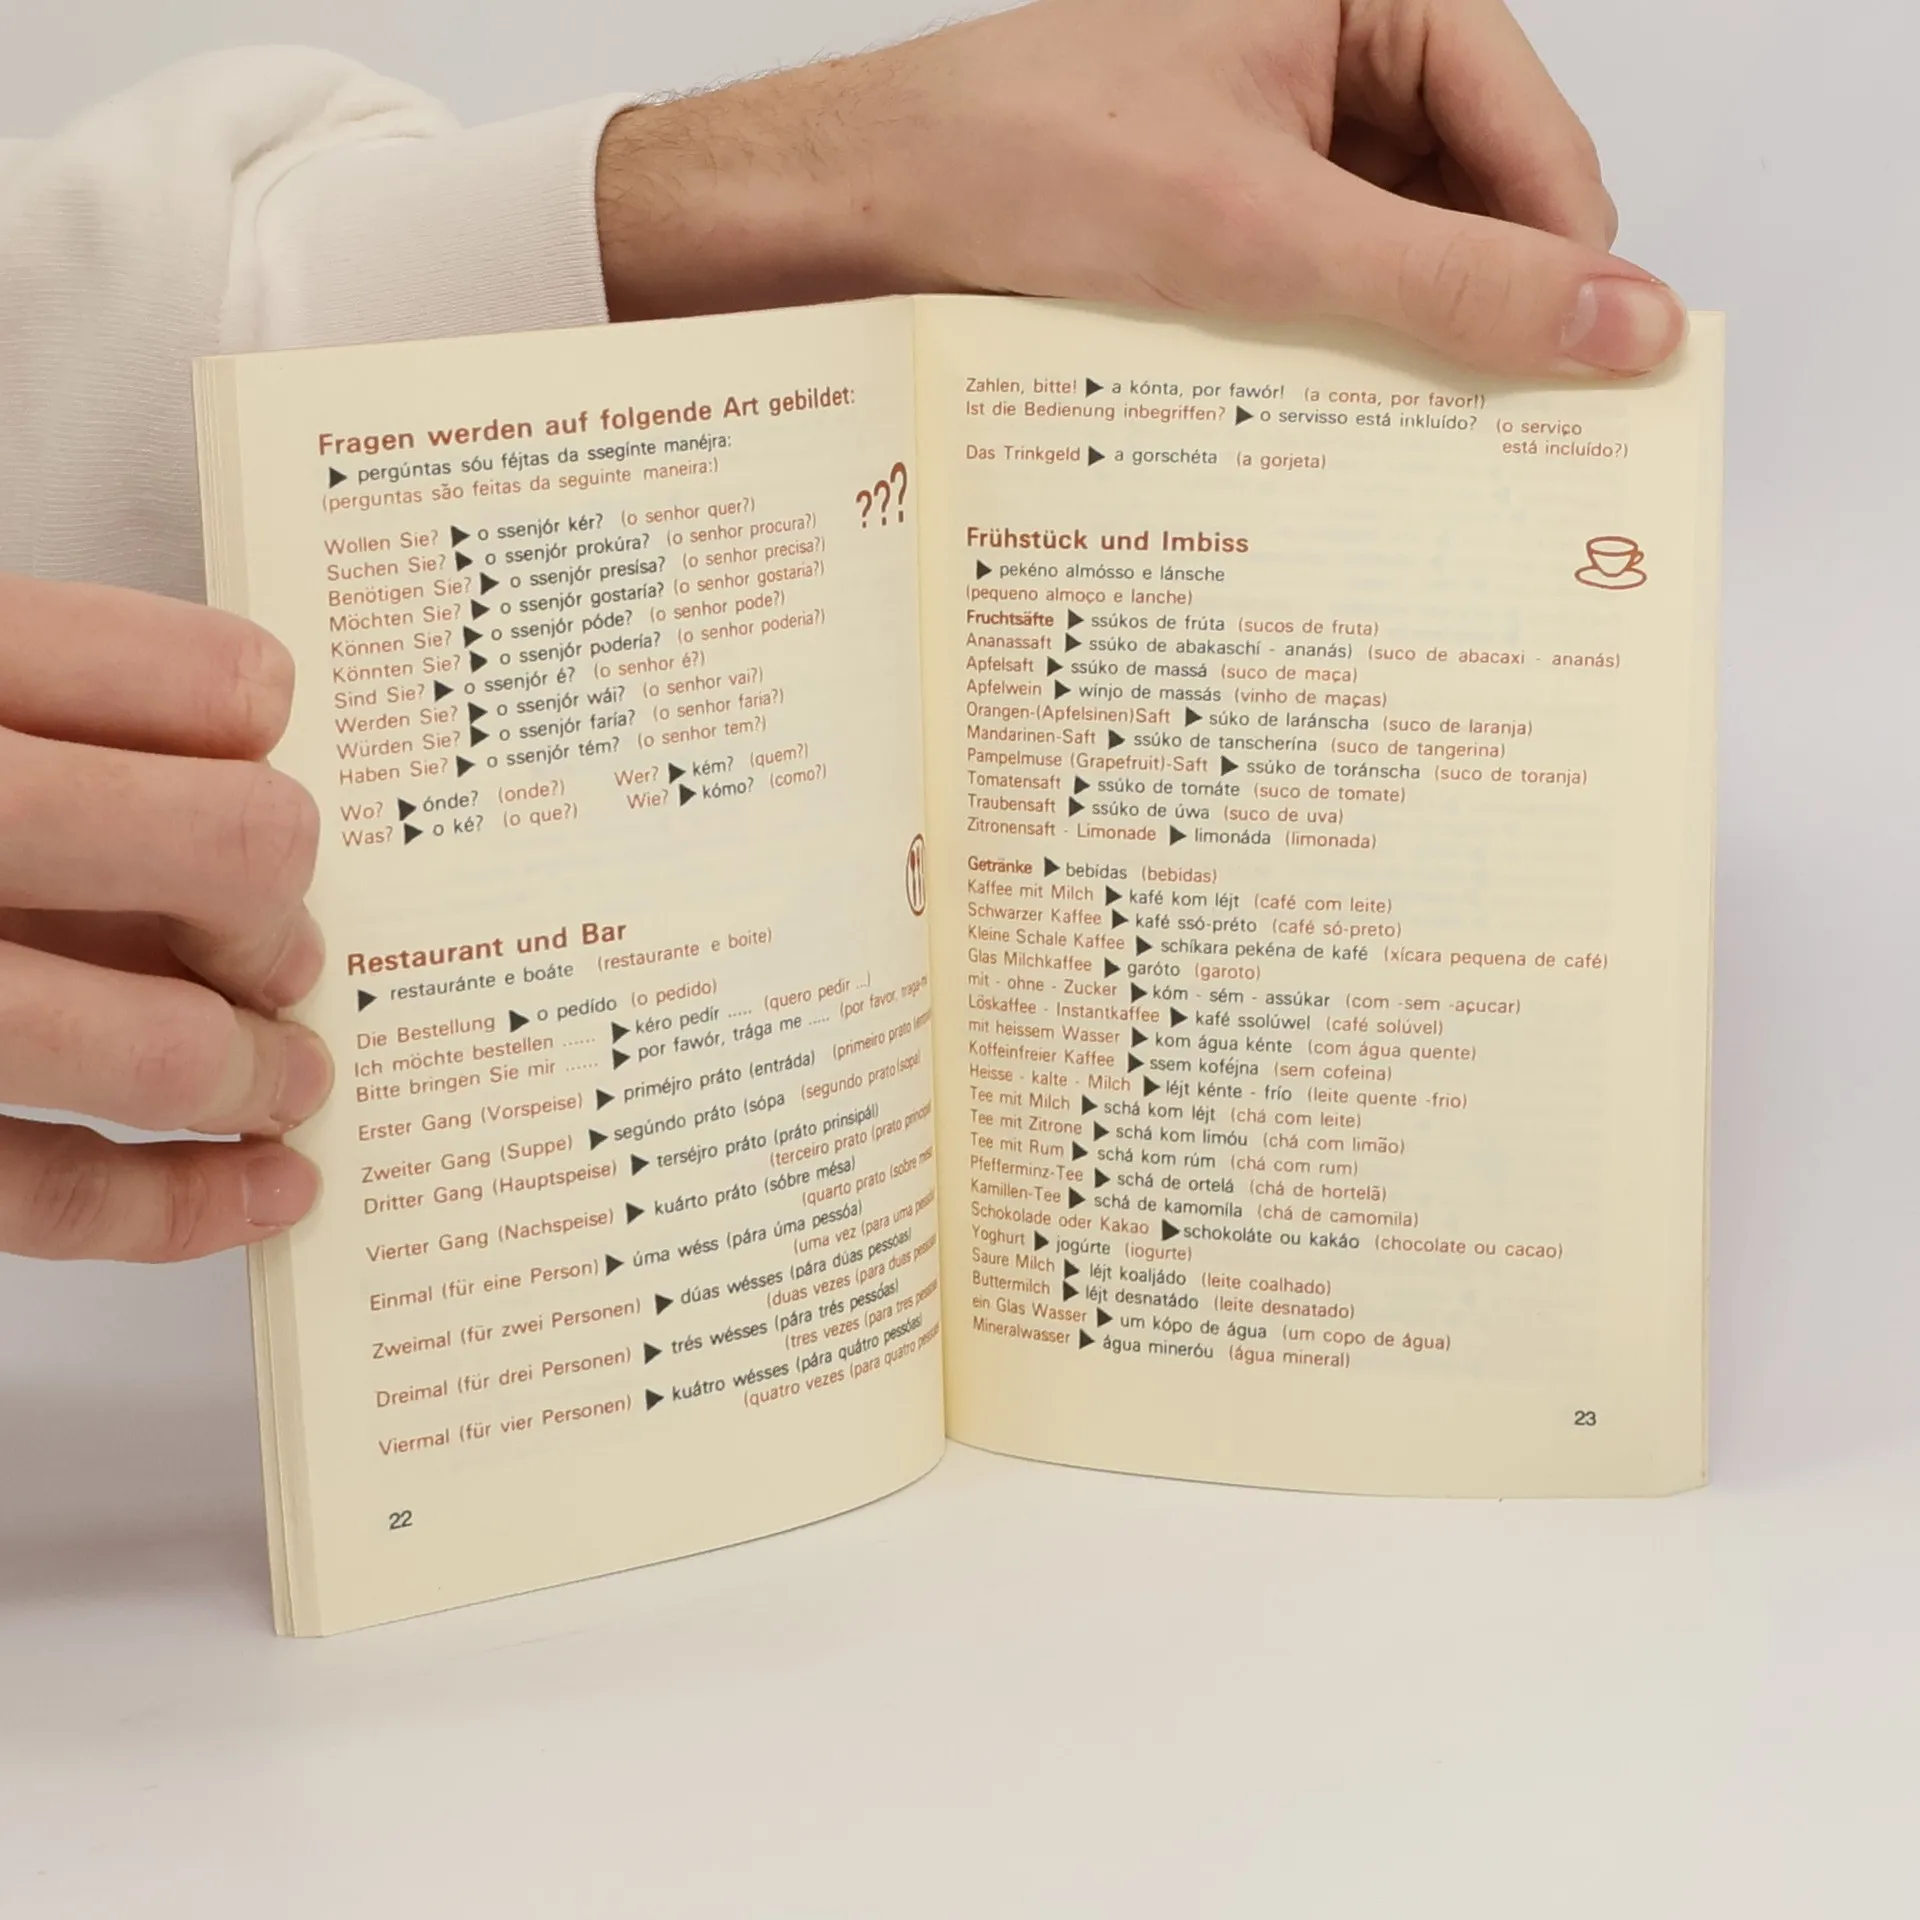 Fragen werden auf folgende Art gebildet:
▶ pergúntas sóu féjtas da ssegínte manéjra:
(perguntas são feitas da seguinte maneira:)
???
Wollen Sie? ▶ o ssenjór kér? (o senhor quer?)
Suchen Sie? ▶ o ssenjór prokúra? (o senhor procura?)
Benötigen Sie? ▶ o ssenjór presísa? (o senhor precisa?)
Möchten Sie? ▶ o ssenjór gostaría? (o senhor gostaria?)
Können Sie? ▶ o ssenjór póde? (o senhor pode?)
Könnten Sie? ▶ o ssenjór podería? (o senhor poderia?)
Sind Sie? ▶ o ssenjór é? (o senhor é?)
Werden Sie? ▶ o ssenjór wái? (o senhor vai?)
Würden Sie? ▶ o ssenjór faría? (o senhor faria?)
Haben Sie? ▶ o ssenjór tém? (o senhor tem?)
Wo? ▶ ónde? (onde?) Wer? ▶ kém? (quem?)
Was? ▶ o ké? (o que?) Wie? ▶ kómo? (como?)
Restaurant und Bar
▶ restauránte e boáte (restaurante e boite)
Die Bestellung ▶ o pedído (o pedido)
Ich möchte bestellen ...... ▶ kéro pedír ..... (quero pedir ...)
Bitte bringen Sie mir ...... ▶ por fawór, trága me ..... (por favor,
Erster Gang (Vorspeise) ▶ priméjro práto (entráda) (primeiro prato
Zweiter Gang (Suppe) ▶ segúndo práto (sópa (segundo prato (sopa)
Dritter Gang (Hauptspeise) ▶ terséjro práto (práto prinsipál)
(terceiro prato (prato principal
Vierter Gang (Nachspeise) ▶ kuárto práto (sóbre mésa)
(quarto prato (sobre mesa
Einmal (für eine Person) ▶ úma wéss (pára úma pessóa)
(uma vez (para uma pessoa
Zweimal (für zwei Personen) ▶ dúas wésses (pára dúas pessóas)
(duas vezes (para duas
Dreimal (für drei Personen) ▶ trés wésses (pára trés pessóas)
(tres vezes (para tres
Viermal (für vier Personen) ▶ kuátro wésses (pára quátro pessóas)
(quatro vezes (para quatro
22
Zahlen, bitte! ▶ a kónta, por fawór! (a conta, por favor!)
Ist die Bedienung inbegriffen? ▶ o servisso está inkluído? (o serviço
está incluído?)
Das Trinkgeld ▶ a gorschéta (a gorjeta)
Frühstück und Imbiss
▶ pekéno almósso e lánsche
(pequeno almoço e lanche)
Fruchtsäfte ▶ ssúkos de frúta (sucos de fruta)
Ananassaft ▶ ssúko de abakaschí - ananás) (suco de abacaxi - ananás)
Apfelsaft ▶ ssúko de massá (suco de maça)
Apfelwein ▶ wínjo de massás (vinho de maças)
Orangen-(Apfelsinen)Saft ▶ súko de laránscha (suco de laranja)
Mandarinen-Saft ▶ ssúko de tanscherína (suco de tangerina)
Pampelmuse (Grapefruit)-Saft ▶ ssúko de toránscha (suco de toranja)
Tomatensaft ▶ ssúko de tomáte (suco de tomate)
Traubensaft ▶ ssúko de úwa (suco de uva)
Zitronensaft - Limonade ▶ limonáda (limonada)
Getränke ▶ bebídas (bebidas)
Kaffee mit Milch ▶ kafé kom léjt (café com leite)
Schwarzer Kaffee ▶ kafé ssó-préto (café só-preto)
Kleine Schale Kaffee ▶ schíkara pekéna de kafé (xícara pequena de café)
Glas Milchkaffee ▶ garóto (garoto)
mit - ohne - Zucker ▶ kóm - sém - assúkar (com -sem -açucar)
Löskaffee - Instantkaffee ▶ kafé ssolúwel (café solúvel)
mit heissem Wasser ▶ kom água kénte (com água quente)
Koffeinfreier Kaffee ▶ ssem koféjna (sem cofeina)
Heisse - kalte - Milch ▶ léjt kénte - frío (leite quente -frio)
Tee mit Milch ▶ schá kom léjt (chá com leite)
Tee mit Zitrone ▶ schá kom limóu (chá com limão)
Tee mit Rum ▶ schá kom rúm (chá com rum)
Pfefferminz-Tee ▶ schá de ortelá (chá de hortelã)
Kamillen-Tee ▶ schá de kamomíla (chá de camomila)
Schokolade oder Kakao ▶ schokoláte ou kakáo (chocolate ou cacao)
Yoghurt ▶ jogúrte (iogurte)
Saure Milch ▶ léjt koaljádo (leite coalhado)
Buttermilch ▶ léjt desnatádo (leite desnatado)
ein Glas Wasser ▶ um kópo de água (um copo de água)
Mineralwasser ▶ água mineróu (água mineral)
23